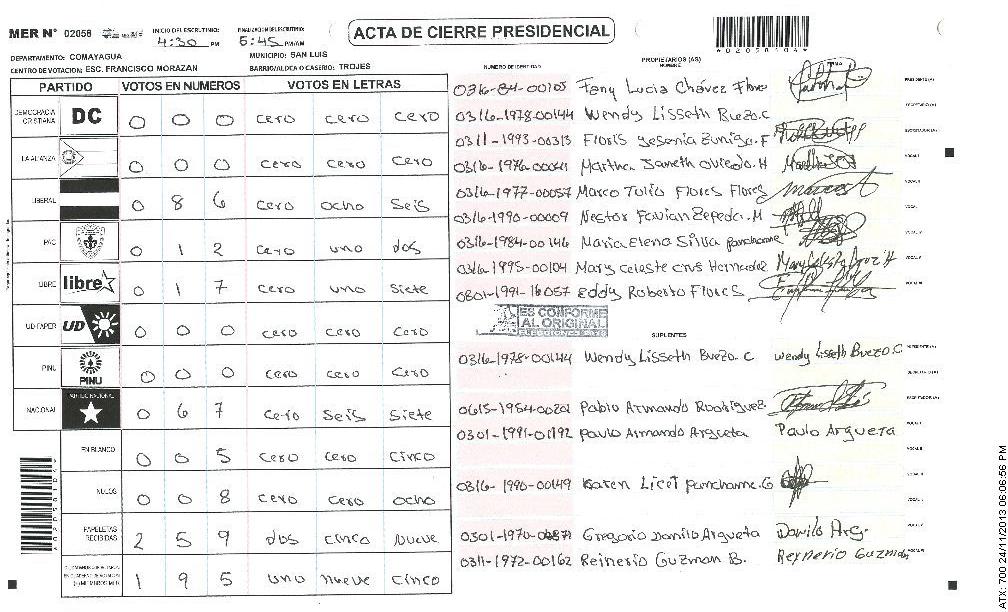 MER N° 02058
INICIO DEL ESCRUTINIO: 4:30 PM
FINALIZACION DEL ESCRUTINIO: 5:45 PM/AM
ACTA DE CIERRE PRESIDENCIAL
*02058104*
DEPARTAMENTO: COMAYAGUA
MUNICIPIO: SAN LUIS
CENTRO DE VOTACION: ESC. FRANCISCO MORAZAN
BARRIO/ALDEA O CASERIO: TROJES
PARTIDO VOTOS EN NUMEROS VOTOS EN LETRAS
DEMOCRACIA CRISTIANA DC 0 0 0 cero cero cero
LA ALIANZA 0 0 0 cero cero cero
LIBERAL 0 8 6 cero ocho seis
PAC 0 1 2 cero uno dos
LIBRE libre 0 1 7 cero uno siete
UD FAPER UD 0 0 0 cero cero cero
PINU PINU 0 0 0 cero cero cero
NACIONAL PARTIDO NACIONAL 0 6 7 cero seis siete
EN BLANCO 0 0 5 cero cero cinco
NULOS 0 0 8 cero cero ocho
PAPELETAS RECIBIDAS 2 5 9 dos cinco nueve
1 9 5 uno nueve cinco
NUMERO DE IDENTIDAD
PROPIETARIOS (AS)
NOMBRE
FIRMA
0316-84-00105 Fany Lucia Chávez Flores
PRESIDENTE (A)
0316-1978-00144 Wendy Lisseth Buezo.C
SECRETARIO (A)
0311-1993-00313 Floris Yesenia Zuniga.F
ESCRUTADOR (A)
0316-1976-00041 Martha Janeth Oviedo.H
VOCAL I
0316-1977-00057 Marco Tulio Flores Flores
VOCAL II
0316-1990-00009 Nestor Favian Zepeda.M
0316-1984-00146 Maria Elena Silva panchame
0316-1995-00104 Mary Celeste Cruz Hernandez
0801-1991-16057 Eddy Roberto Flores
ES CONFORME
AL ORIGINAL
ELECCIONES 2013
SUPLENTES
0316-1978-00144 Wendy Lisseth Buezo.C Wendy Lisseth Buezo.C
0615-1954-00201 Pablo Armando Rodriguez
0301-1991-01792 Paulo Armando Argueta Paulo Argueta
0316-1990-00149 Karen Licet panchame.G
Gregorio Danilo Argueta Danilo Arg.
0311-1972-00162 Reinerio Guzman B. Reynerio Guzman
ATX: 700 24/11/2013 06:06:56 PM